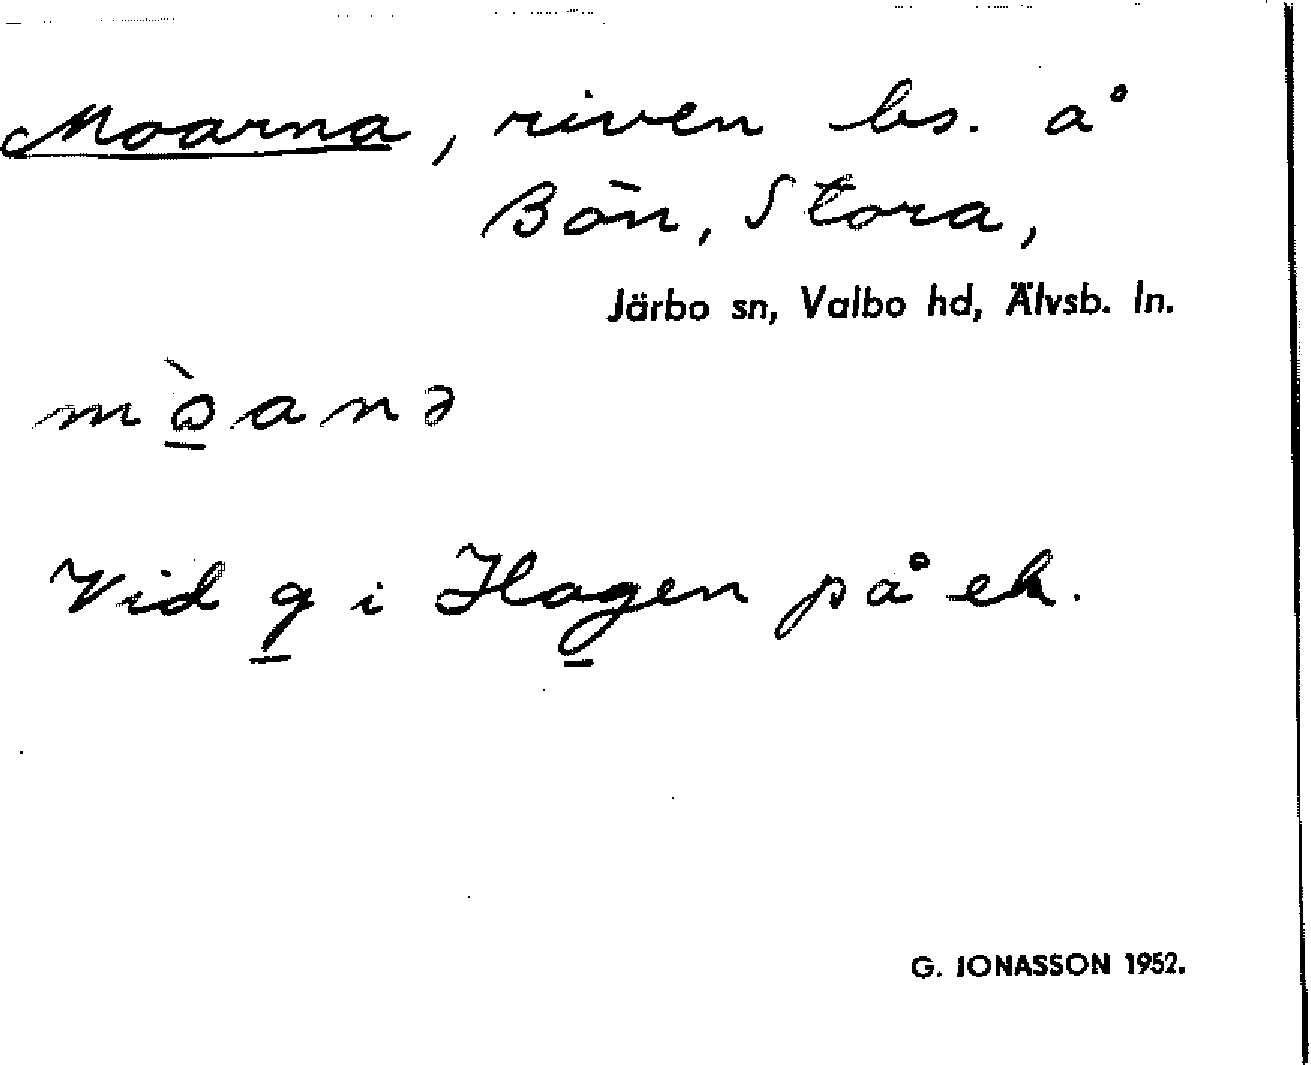 Moarna, riven bs. å
Bön, Stora,
Järbo sn, Valbo hd, Älvsb. ln.
Vid g i Hagen på ek.
G. JONASSON 1952.